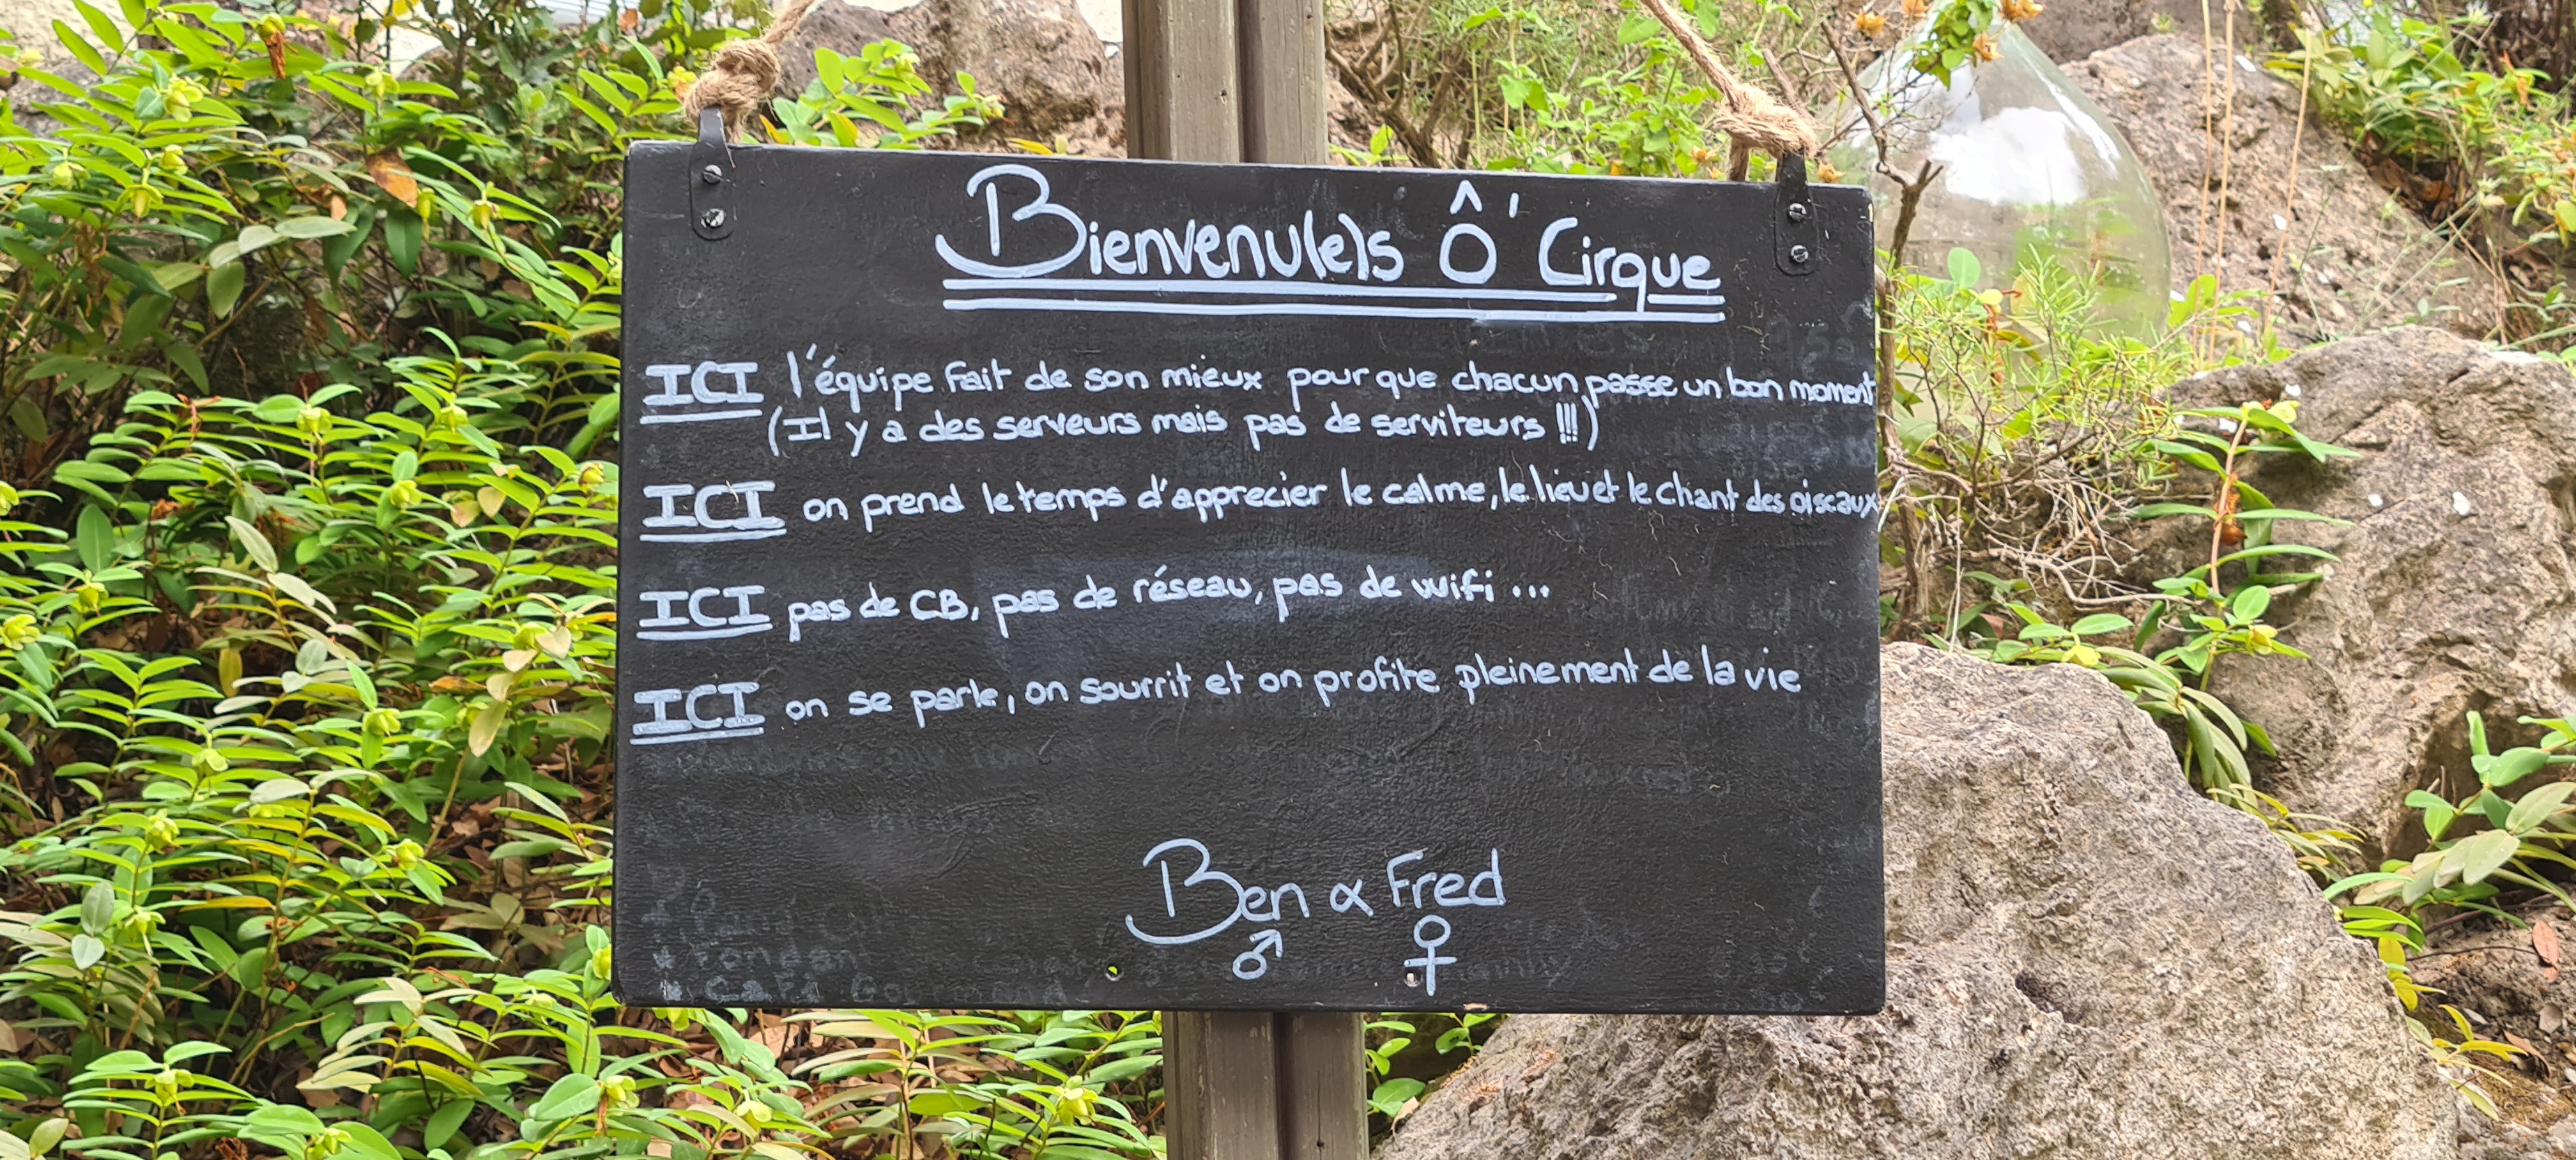 Bienvenu(e)s Ô' Cirque
ICI l'équipe fait de son mieux pour que chacun passe un bon moment
(Il y a des serveurs mais pas de serviteurs !!!)
ICI on prend le temps d'apprecier le calme, le lieu et le chant des oiseaux
ICI pas de CB, pas de réseau, pas de wifi ...
ICI on se parle, on sourrit et on profite pleinement de la vie
Ben & Fred
♂ ♀
Fondan
Café Gourmand